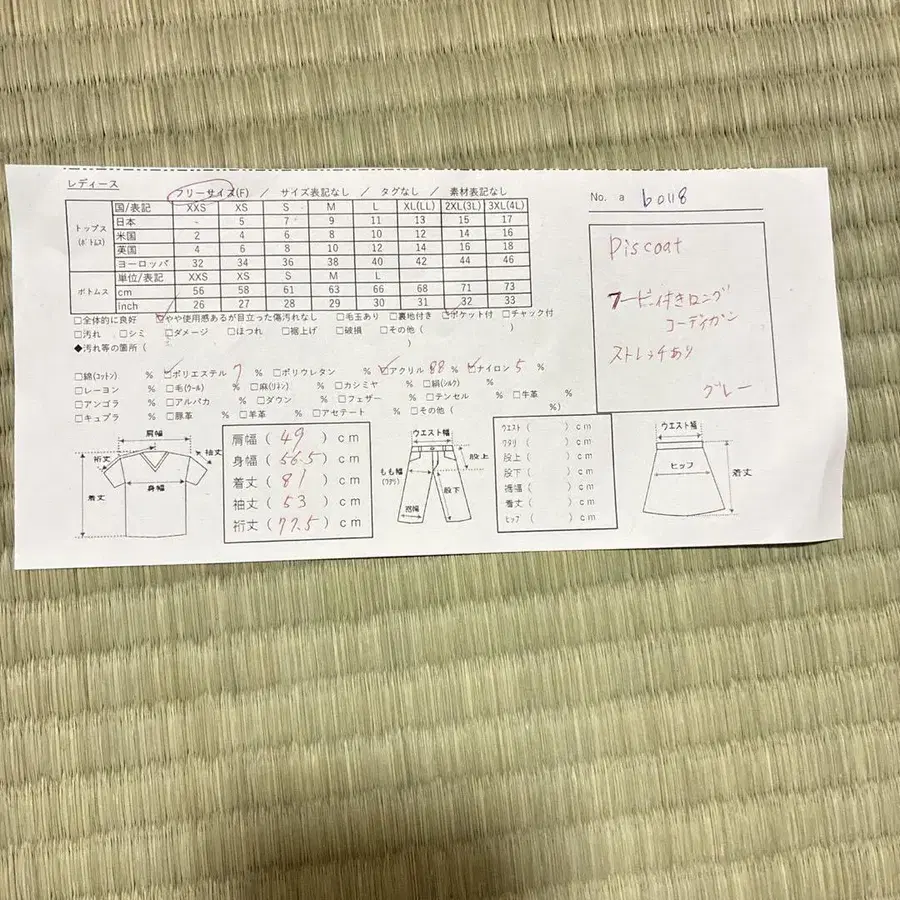 レディース
フリーサイズ(F) / サイズ表記なし / タグなし / 素材表記なし
No. a b0118
トップス
(ボトムス)
国/表記 XXS XS S M L XL(LL) 2XL(3L) 3XL(4L)
日本 - 5 7 9 11 13 15 17
米国 2 4 6 8 10 12 14 16
英国 4 6 8 10 12 14 16 18
ヨーロッパ 32 34 36 38 40 42 44 46
ボトムス
単位/表記 XXS XS S M L
cm 56 58 61 63 66 68 71 73
inch 26 27 28 29 30 31 32 33
□全体的に良好 ☑やや使用感あるが目立った傷汚れなし □毛玉あり □裏地付き ☑ポケット付 □チャック付
□汚れ □シミ □ダメージ □ほつれ □裾上げ □破損 □その他 ( )
◆汚れ等の箇所 ( )
□綿(コットン) % ☑ポリエステル 7 % □ポリウレタン % ☑アクリル 88 % ☑ナイロン 5 %
□レーヨン % □毛(ウール) % □麻(リネン) % □カシミヤ % □絹(シルク) %
□アンゴラ % □アルパカ % □ダウン % □フェザー % □テンセル % □牛革 %
□キュプラ % □豚革 % □羊革 % □アセテート % □その他 ( %)
Discoat
フード付きロング
コーディガン
ストレッチあり
グレー
肩幅
裄丈
袖丈
身幅
着丈
肩幅 ( 49 ) cm
身幅 ( 56.5 ) cm
着丈 ( 81 ) cm
袖丈 ( 53 ) cm
裄丈 ( 77.5 ) cm
ウエスト幅
股上
もも幅
(ワタリ)
股下
裾幅
ウエスト ( ) cm
ワタリ ( ) cm
股上 ( ) cm
股下 ( ) cm
裾幅 ( ) cm
着丈 ( ) cm
ヒップ ( ) cm
ウエスト幅
ヒップ
着丈